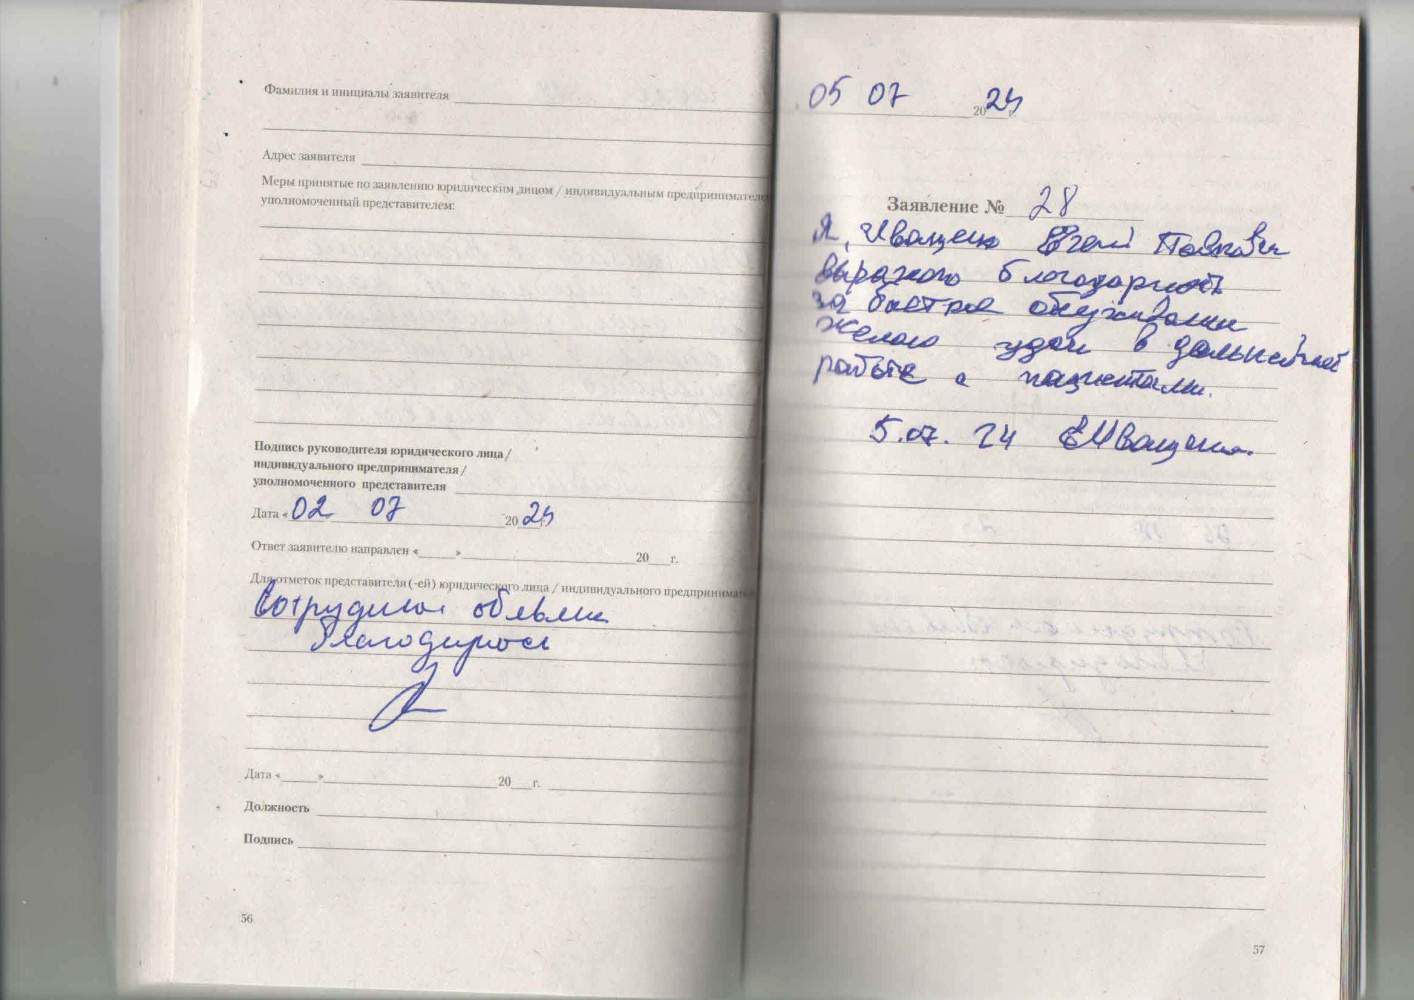 Фамилия и инициалы заявителя
Адрес заявителя
Меры принятые по заявлению юридическим лицом / индивидуальным предпринимателе
уполномоченный представителем:
Подпись руководителя юридического лица/
индивидуального предпринимателя/
уполномоченного представителя
Дата « 02 07 2024 г.
Ответ заявителю направлен «___»___ 20___г.
Для отметок представителя (-ей) юридического лица / индивидуального предпринимат
Сотрудникам объявлена
благодарность
Дата «___»___ 20___г.
Должность
Подпись
56
05 07 2024 г.
Заявление № 28
Я, Иващенко Евгений Павлович
выражаю благодарность
за быстрое обслуживание
желаю удачи в дальнейшей
работе с пациентами.
5.07.24 Е Иващенко
57